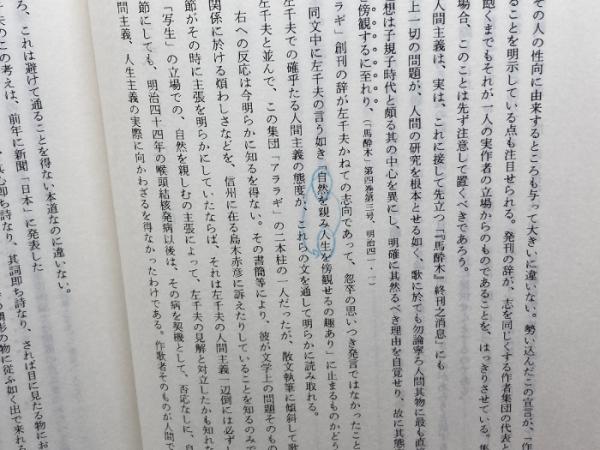 その人の性向に由来するところも与って大きいに違いない。勢い込んだこの宣言が、「作
ることを明示している点も注目せられる。発刊の辞が、志を同じくする作者集団の代表と
飽くまでもそれが一人の実作者の立場からのものであることを、はっきりさせている。集
場合、このことは先ず注意して置くべきであろう。
人間主義は、実は、これに接して先立つ「『馬酔木』終刊之消息」にも
上一切の問題が、人間の研究を根本とせる如く、歌に於ても勿論寧ろ人間其物に最も直
想は子規子時代と頗る其の中心を異にし、明確に其然るべき理由を自覚せり、故に其態
傍観するに至れり、(「馬酔木」第四巻第三号、明治四一・一)
アララギ」創刊の辞が左千夫かねての志向であって、忽卒の思いつき発言ではなかったこと
同文中に左千夫の言う如き「自然を親み人生を傍観せるの趣あり」に止まるものかどう
左千夫での確乎たる人間主義の態度が、これらの文を通して明らかに読み取れる。
左千夫と並んで、この集団「アララギ」の二本柱の一人だったが、散文執筆に傾斜して歌
右への反応は今明らかに知るを得ない。その書簡等により、彼が文学上の問題そのもの
関係に於ける煩わしさなどを、信州に在る島木赤彦に訴えたりしていることを知るのみで
節がその時に主張を明らかにしていたならば、それは左千夫の人間主義一辺倒には必ずし
「写生」の立場での、自然を親しむの主張によって、左千夫の見解と対立したかも知れな
節にしても、明治四十四年の喉頭結核発病以後は、その病を契機として、否応なしに、自
人間主義、人生主義の実際に向かわざるを得なかったわけである。作歌者そのものが人間で
ろ、これは避けて通ることを得ない本道なのに違いない。
夫のこの考えは、前年に新聞「日本」に発表した
心即ち詩なり、其詞即ち詩なり、されば目に見たる物にお
の物に従ふ如く出で来れる